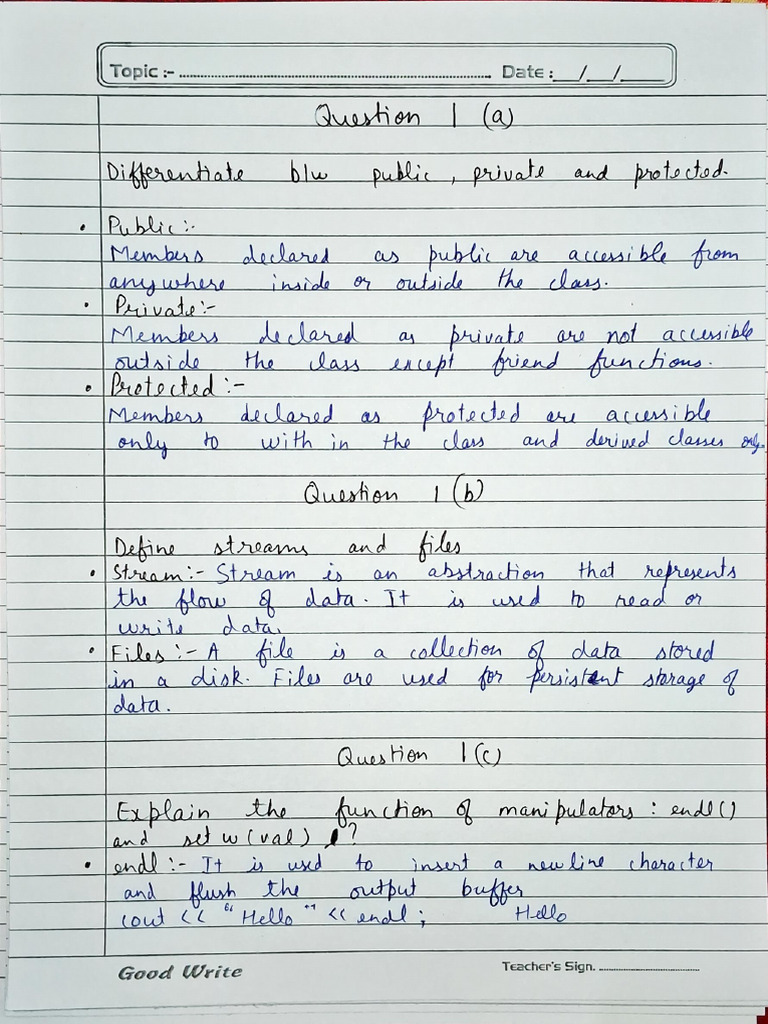 Topic :- Date : __/__/____
Question 1 (a)
Differentiate b/w public, private and protected.
• Public :-
Members declared as public are accessible from
anywhere inside or outside the class.
• Private :-
Members declared as private are not accessible
outside the class except friend functions.
• Protected :-
Members declared as protected are accessible
only to with in the class and derived classes only.
Question 1 (b)
Define streams and files
• Stream :- Stream is an abstraction that represents
the flow of data. It is used to read or
write data.
• Files :- A file is a collection of data stored
in a disk. Files are used for persistent storage of
data.
Question 1 (c)
Explain the function of manipulators : endl()
and set w (val) ?
• endl :- It is used to insert a newline character
and flush the output buffer
cout << "Hello" << endl ; Hello
Good Write Teacher's Sign.